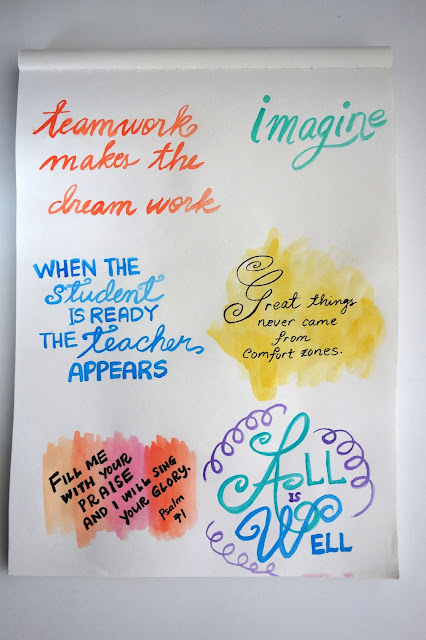 teamwork
makes the
dream work
imagine
WHEN THE
student
IS READY
THE teacher
APPEARS
Great things
never came
from
comfort zones.
FILL ME
WITH YOUR
PRAISE
AND I WILL SING
YOUR GLORY.
Psalm
71
ALL
IS
WELL